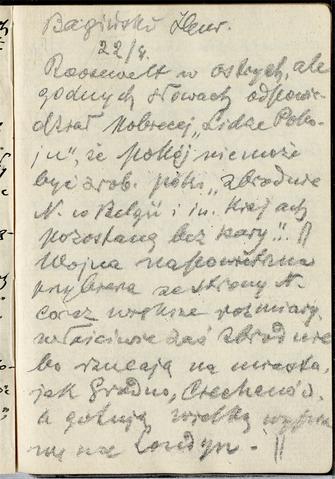 Bagiński Henr.
22/4.
Roosewelt w ostrych, ale
godnych słowach odpowie-
dział Kobiecej „Lidze Poko-
ju", że pokój niemoże
być zrob. póki „zbrodnie
N. w Belgii i in. krajach
pozostaną bez kary".. ||
Wojna napowietrzna
przybiera ze strony N.
coraz większe rozmiary
właściwie zaś zbrodnie
bo rzucają na miasta,
jak Grodno, Ciechanów,
a gotują wielką wypra
wę na Londyn. - ||